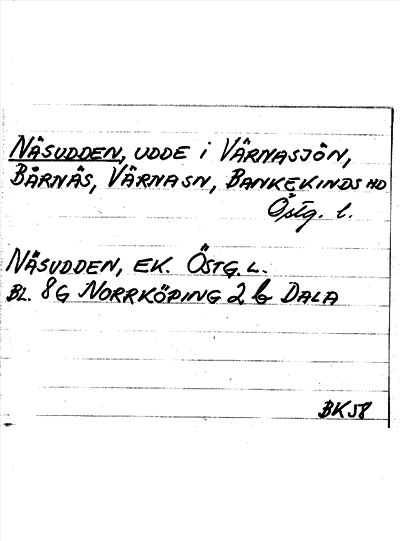 NÄSUDDEN, UDDE i VÄRNASJÖN,
BÅRNÄS, VÄRNASN, BANKEKINDS HD
Östg. l.
NÄSUDDEN, EK. ÖSTG. L.
BL. 8G NORRKÖPING 2 b DALA
BK58